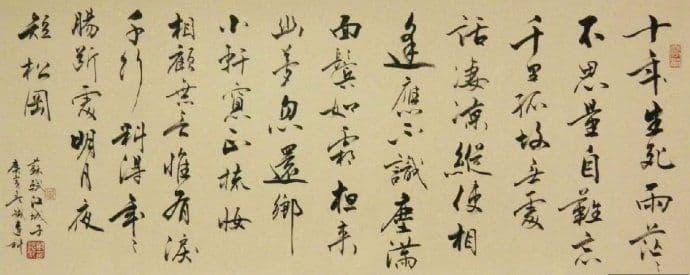 十年生死兩茫〻
不思量自難忘
千里孤坟無處
話凄涼縱使相
逢應不識塵滿
面鬢如霜夜来
幽夢忽還鄉
小軒窗正梳妝
相顧無言惟有淚
千行料得年〻
腸斷處明月夜
短松岡
蘇軾江城子